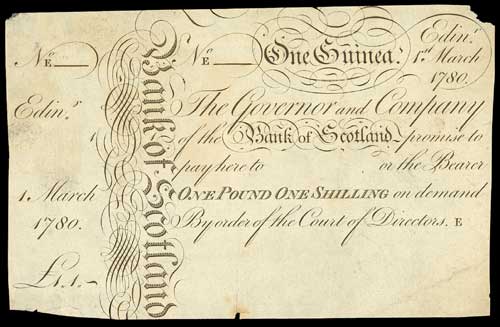 Nº E
Edinʳ
1 March
1780.
£1.1.~
Bank of Scotland
Nº E
One Guinea.
Edinʳ
1ˢᵗ March
1780.
The Governor and Company
of the Bank of Scotland promise to
pay here to or the Bearer
ONE POUND ONE SHILLING on demand
By order of the Court of Directors. E